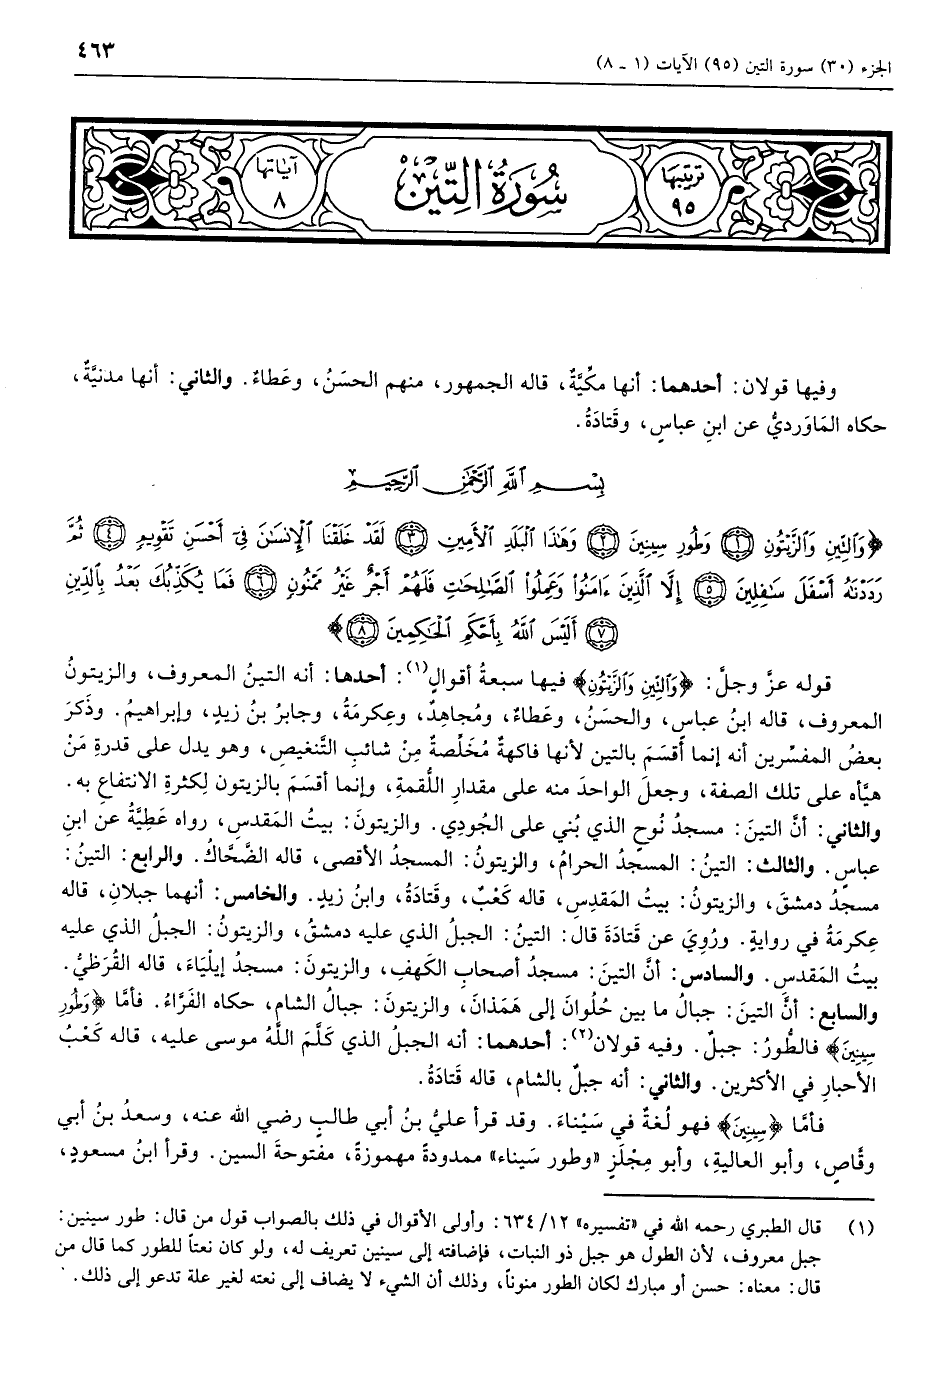 الجزء (٣٠) سورة التين (٩٥) الآيات (١ - ٨)
٤٦٣
ترتيبها ٩٥
سُورَةُ التِّين
آياتها ٨
وفيها قولان: أحدهما: أنها مكِّيَّةٌ، قاله الجمهور، منهم الحسَنُ، وعَطاءٌ. والثاني: أنها مدنيَّةٌ،
حكاه المَاوَرديُّ عن ابنِ عباسٍ، وقَتادَةُ.
بِسْمِ ٱللَّهِ ٱلرَّحْمَٰنِ ٱلرَّحِيمِ
﴿وَٱلتِّينِ وَٱلزَّيْتُونِ ١ وَطُورِ سِينِينَ ٢ وَهَٰذَا ٱلْبَلَدِ ٱلْأَمِينِ ٣ لَقَدْ خَلَقْنَا ٱلْإِنسَٰنَ فِىٓ أَحْسَنِ تَقْوِيمٍ ٤ ثُمَّ
رَدَدْنَٰهُ أَسْفَلَ سَٰفِلِينَ ٥ إِلَّا ٱلَّذِينَ ءَامَنُوا۟ وَعَمِلُوا۟ ٱلصَّٰلِحَٰتِ فَلَهُمْ أَجْرٌ غَيْرُ مَمْنُونٍ ٦ فَمَا يُكَذِّبُكَ بَعْدُ بِٱلدِّينِ
٧ أَلَيْسَ ٱللَّهُ بِأَحْكَمِ ٱلْحَٰكِمِينَ ٨﴾
قوله عزَّ وجلَّ: ﴿وَٱلتِّينِ وَٱلزَّيْتُونِ﴾ فيها سبعةُ أقوالٍ(١): أحدها: أنه التينُ المعروف، والزيتونُ
المعروف، قاله ابنُ عباس، والحسَنُ، وعَطاءٌ، ومُجاهِدٌ، وعِكرمَةُ، وجابرُ بنُ زيدٍ، وإبراهيمُ. وذَكرَ
بعضُ المفسِّرين أنه إنما أَقسَمَ بالتين لأنها فاكهةٌ مُخَلَّصةٌ مِنْ شائبِ التَّنغيصِ، وهو يدل على قدرةِ مَنْ
هيَّأه على تلك الصفة، وجعلَ الواحدَ منه على مقدارِ اللُّقمةِ، وإنما أقسَمَ بالزيتون لِكثرةِ الانتفاعِ به.
والثاني: أنَّ التينَ: مسجدُ نُوحٍ الذي بُني على الجُودي. والزيتونَ: بيتُ المقدسِ، رواه عَطِيَّةُ عن ابنِ
عباسٍ. والثالث: التينُ: المسجدُ الحرامُ، والزيتونُ: المسجدُ الأقصى، قاله الضَّحَّاكُ. والرابع: التينُ:
مسجدُ دمشقَ، والزيتونُ: بيتُ المَقدِسِ، قاله كَعْبٌ، وقَتادَةُ، وابنُ زيدٍ. والخامس: أنهما جبلانِ، قاله
عِكرمَةُ في روايةٍ. ورُوِيَ عن قَتادَةَ قال: التينُ: الجبلُ الذي عليه دمشقُ، والزيتونُ: الجبلُ الذي عليه
بيتُ المَقدسِ. والسادس: أنَّ التينَ: مسجدُ أصحابِ الكَهفِ، والزيتونَ: مسجدُ إيلْيَاءَ، قاله القُرَظيُّ.
والسابع: أنَّ التينَ: جبالُ ما بين حُلْوانَ إلى هَمَذانَ، والزيتونَ: جبالُ الشامِ، حكاه الفَرَّاءُ. فأمَّا ﴿وَطُورِ
سِينِينَ﴾ فالطُّورُ: جبلٌ. وفيه قولان(٢): أحدهما: أنه الجبلُ الذي كَلَّمَ اللَّهُ موسى عليه، قاله كَعْبُ
الأحبارِ في الأكثرين. والثاني: أنه جبلٌ بالشام، قاله قَتادَةُ.
فأمَّا ﴿سِينِينَ﴾ فهو لُغةٌ في سَيْناءَ. وقد قرأ عليُّ بنُ أبي طالبٍ رضي الله عنه، وسعدُ بنُ أبي
وقَّاصٍ، وأبو العاليةِ، وأبو مِجْلَزٍ «وطور سَيناء» ممدودةً مهموزةً، مفتوحةَ السين. وقرأ ابنُ مسعودٍ،
(١) قال الطبري رحمه الله في «تفسيره» ٦٣٤/١٢: وأولى الأقوال في ذلك بالصواب قول من قال: طور سينين:
جبل معروف، لأن الطول هو جبل ذو النبات، فإضافته إلى سينين تعريف له، ولو كان نعتاً للطور كما قال من
قال: معناه: حسن أو مبارك لكان الطور منوناً، وذلك أن الشيء لا يضاف إلى نعته لغير علة تدعو إلى ذلك.